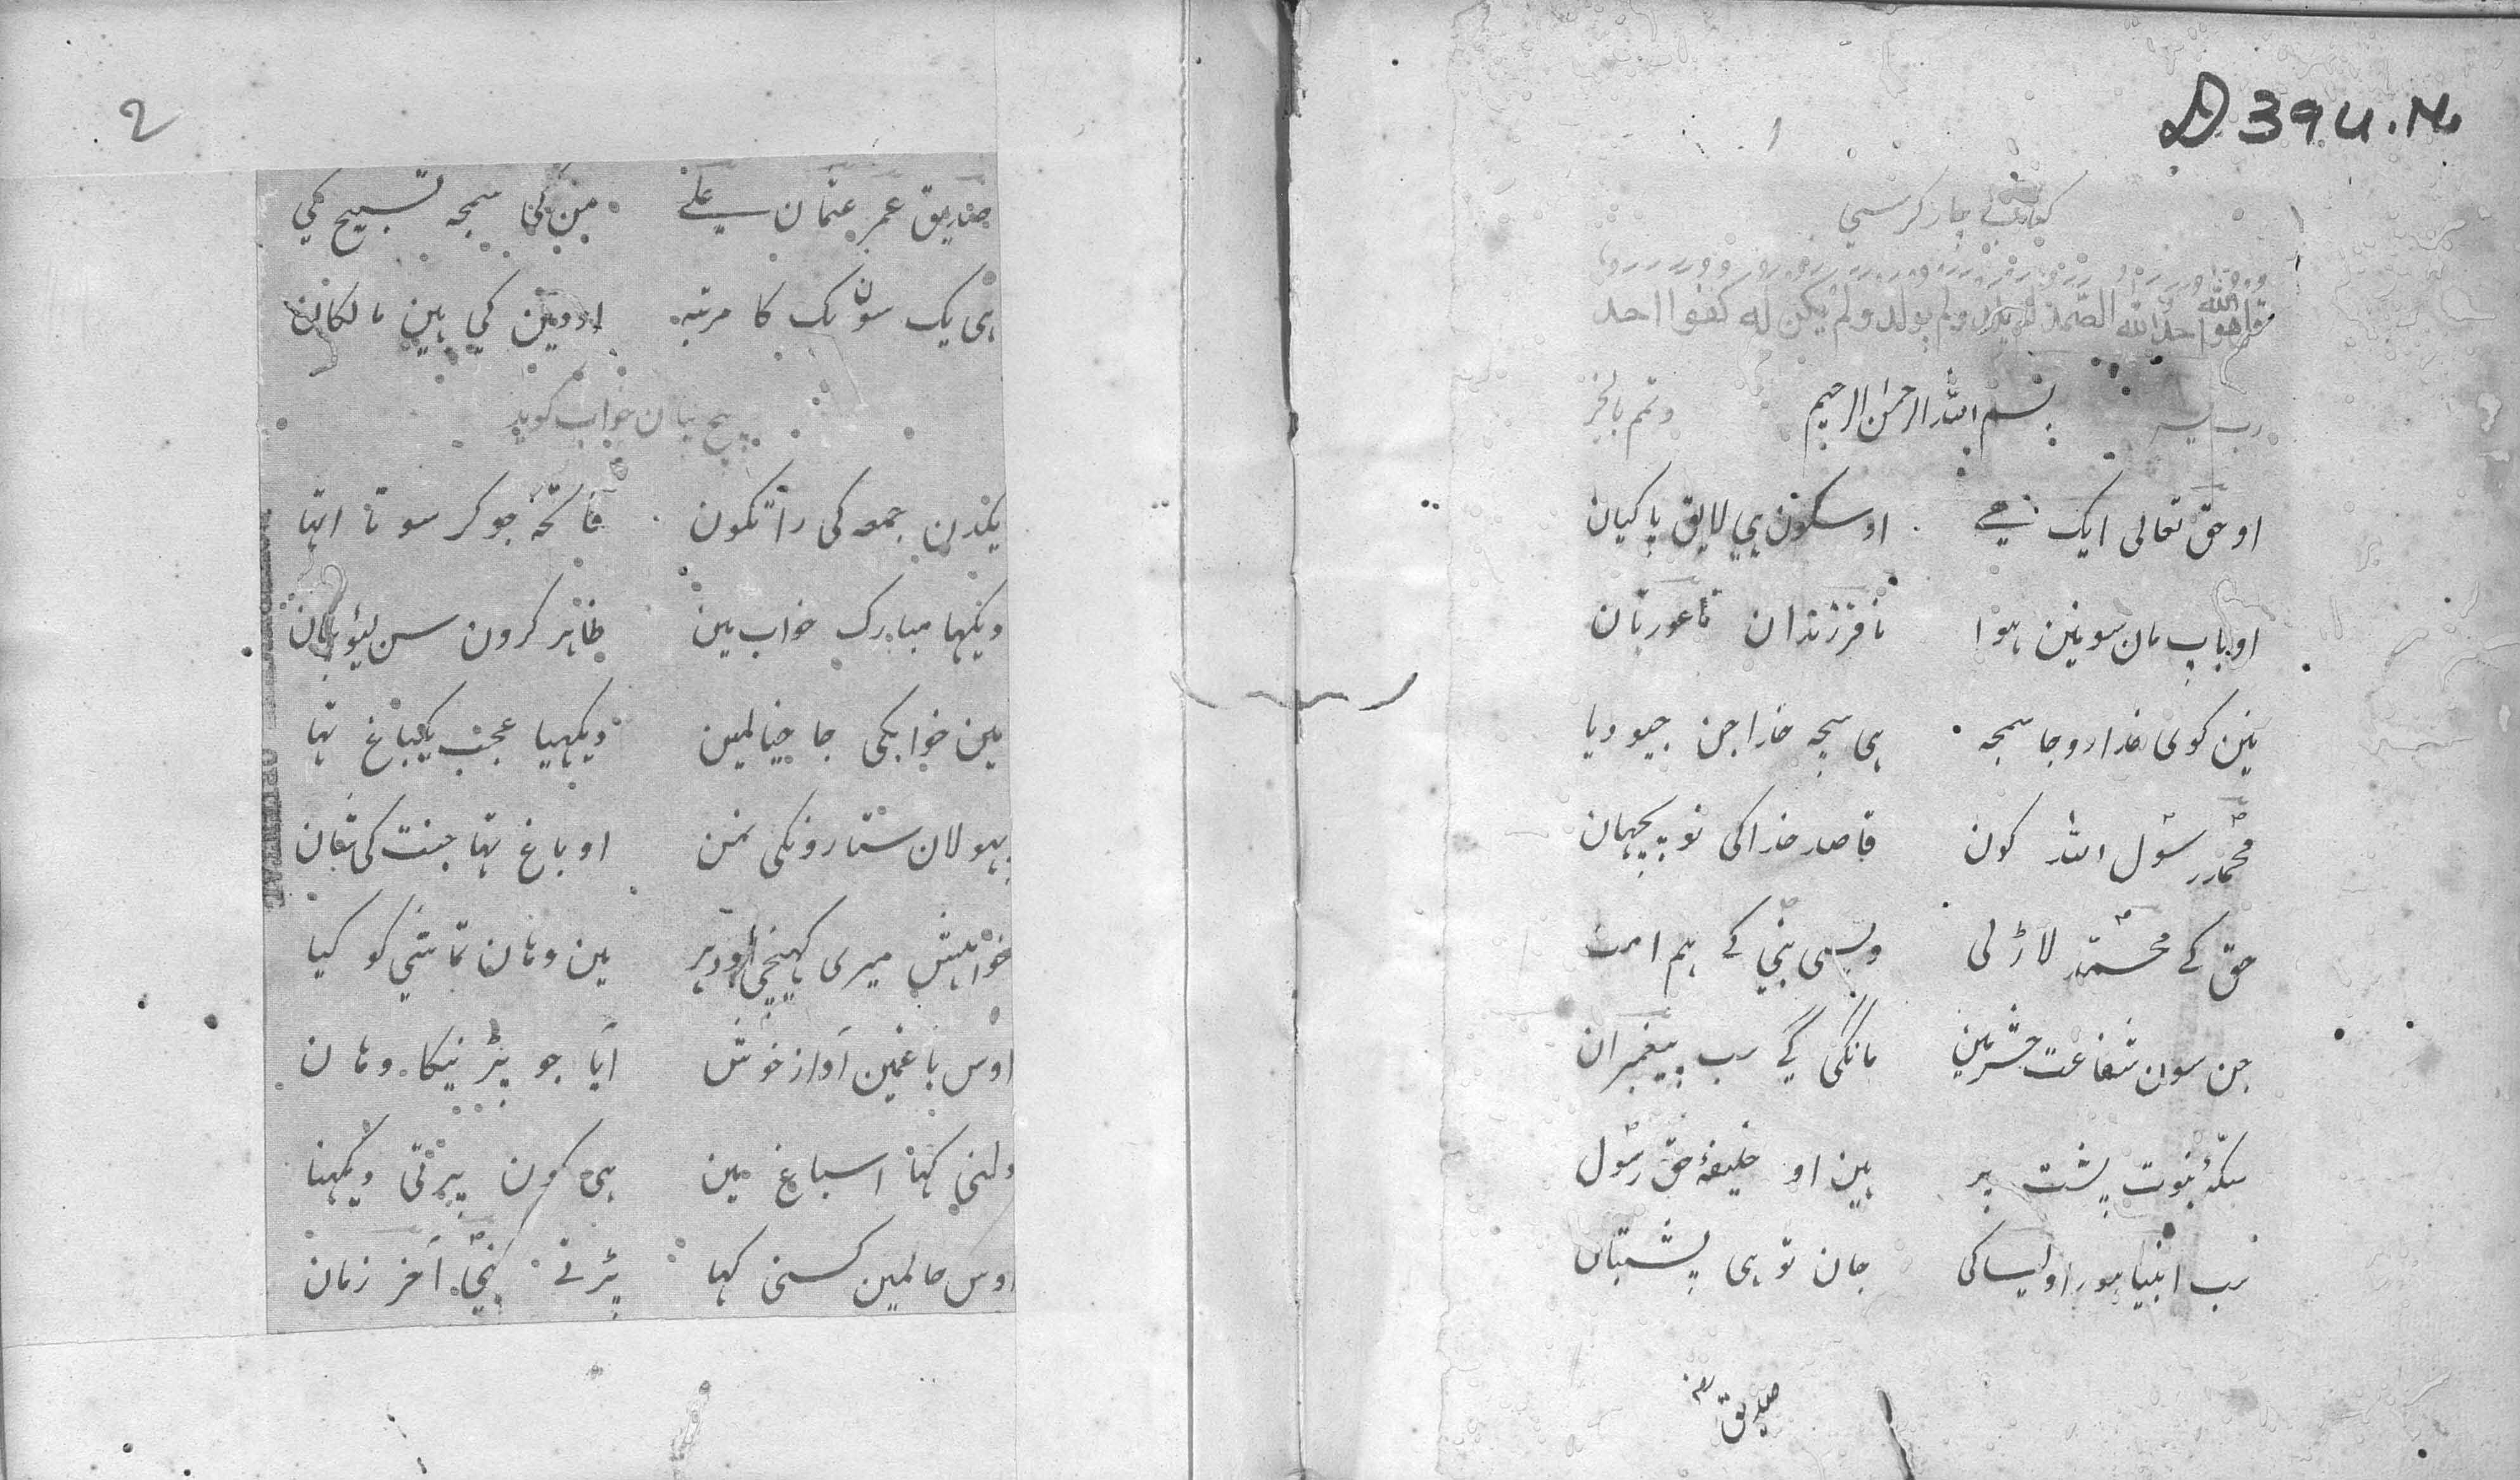 D 394. M.
1
چار کرسی
قل هو الله احد الله الصمد لم یلد ولم یولد ولم یکن له کفوا احد
رب یسر بسم الله الرحمن الرحیم وتمم بالخیر
او حق تعالی ایک ہے اوسکون ہی لایق پاکیان
او باپ مان سو نین ہوا نا فرزندان نا عورتان
نین کوئی خدا دوجا سمجہ ہی سچہ خدا جن جیو دیا
محمد رسول الله کون قاصد خدا کی تو پچہان
حق کے محمد لاڑلی ویسی نبی کے ہم امت
جن سون شفاعت حشر مین مانگی گے سب پیغمبران
سکۂ نبوت پشت پر ہین او خلیفۂ حق رسول
سب انبیا ہور اولیا کی جان تو ہی پشتبان
صدیق
2
صدیق عمر عثمان علے من کی سمجہ تسبیح کی
ہی یک سون یک کا مرتبہ اووین کی ہین مالکان
بیچ بیان خواب گوید
یکدن جمعہ کی راتکون فاتحہ جو کر سوتا اتہا
دیکہا مبارک خواب مین ظاہر کرون سن لیو
مین خوابکی جا خیالمین دیکہیا عجب یکباغ تہا
پہولان ستارونکی نمن او باغ تہا جنت کی
خواہش میری کہینچی اودہر مین وہان تماشی کو گیا
اوس باغمین آواز خوش آیا جو پڑنیکا وہان
ولنی کہا اسباغ مین ہی کون پڑتی دیکہنا
اوس حالمین کسنی کہا پڑتے نبی آخر زمان